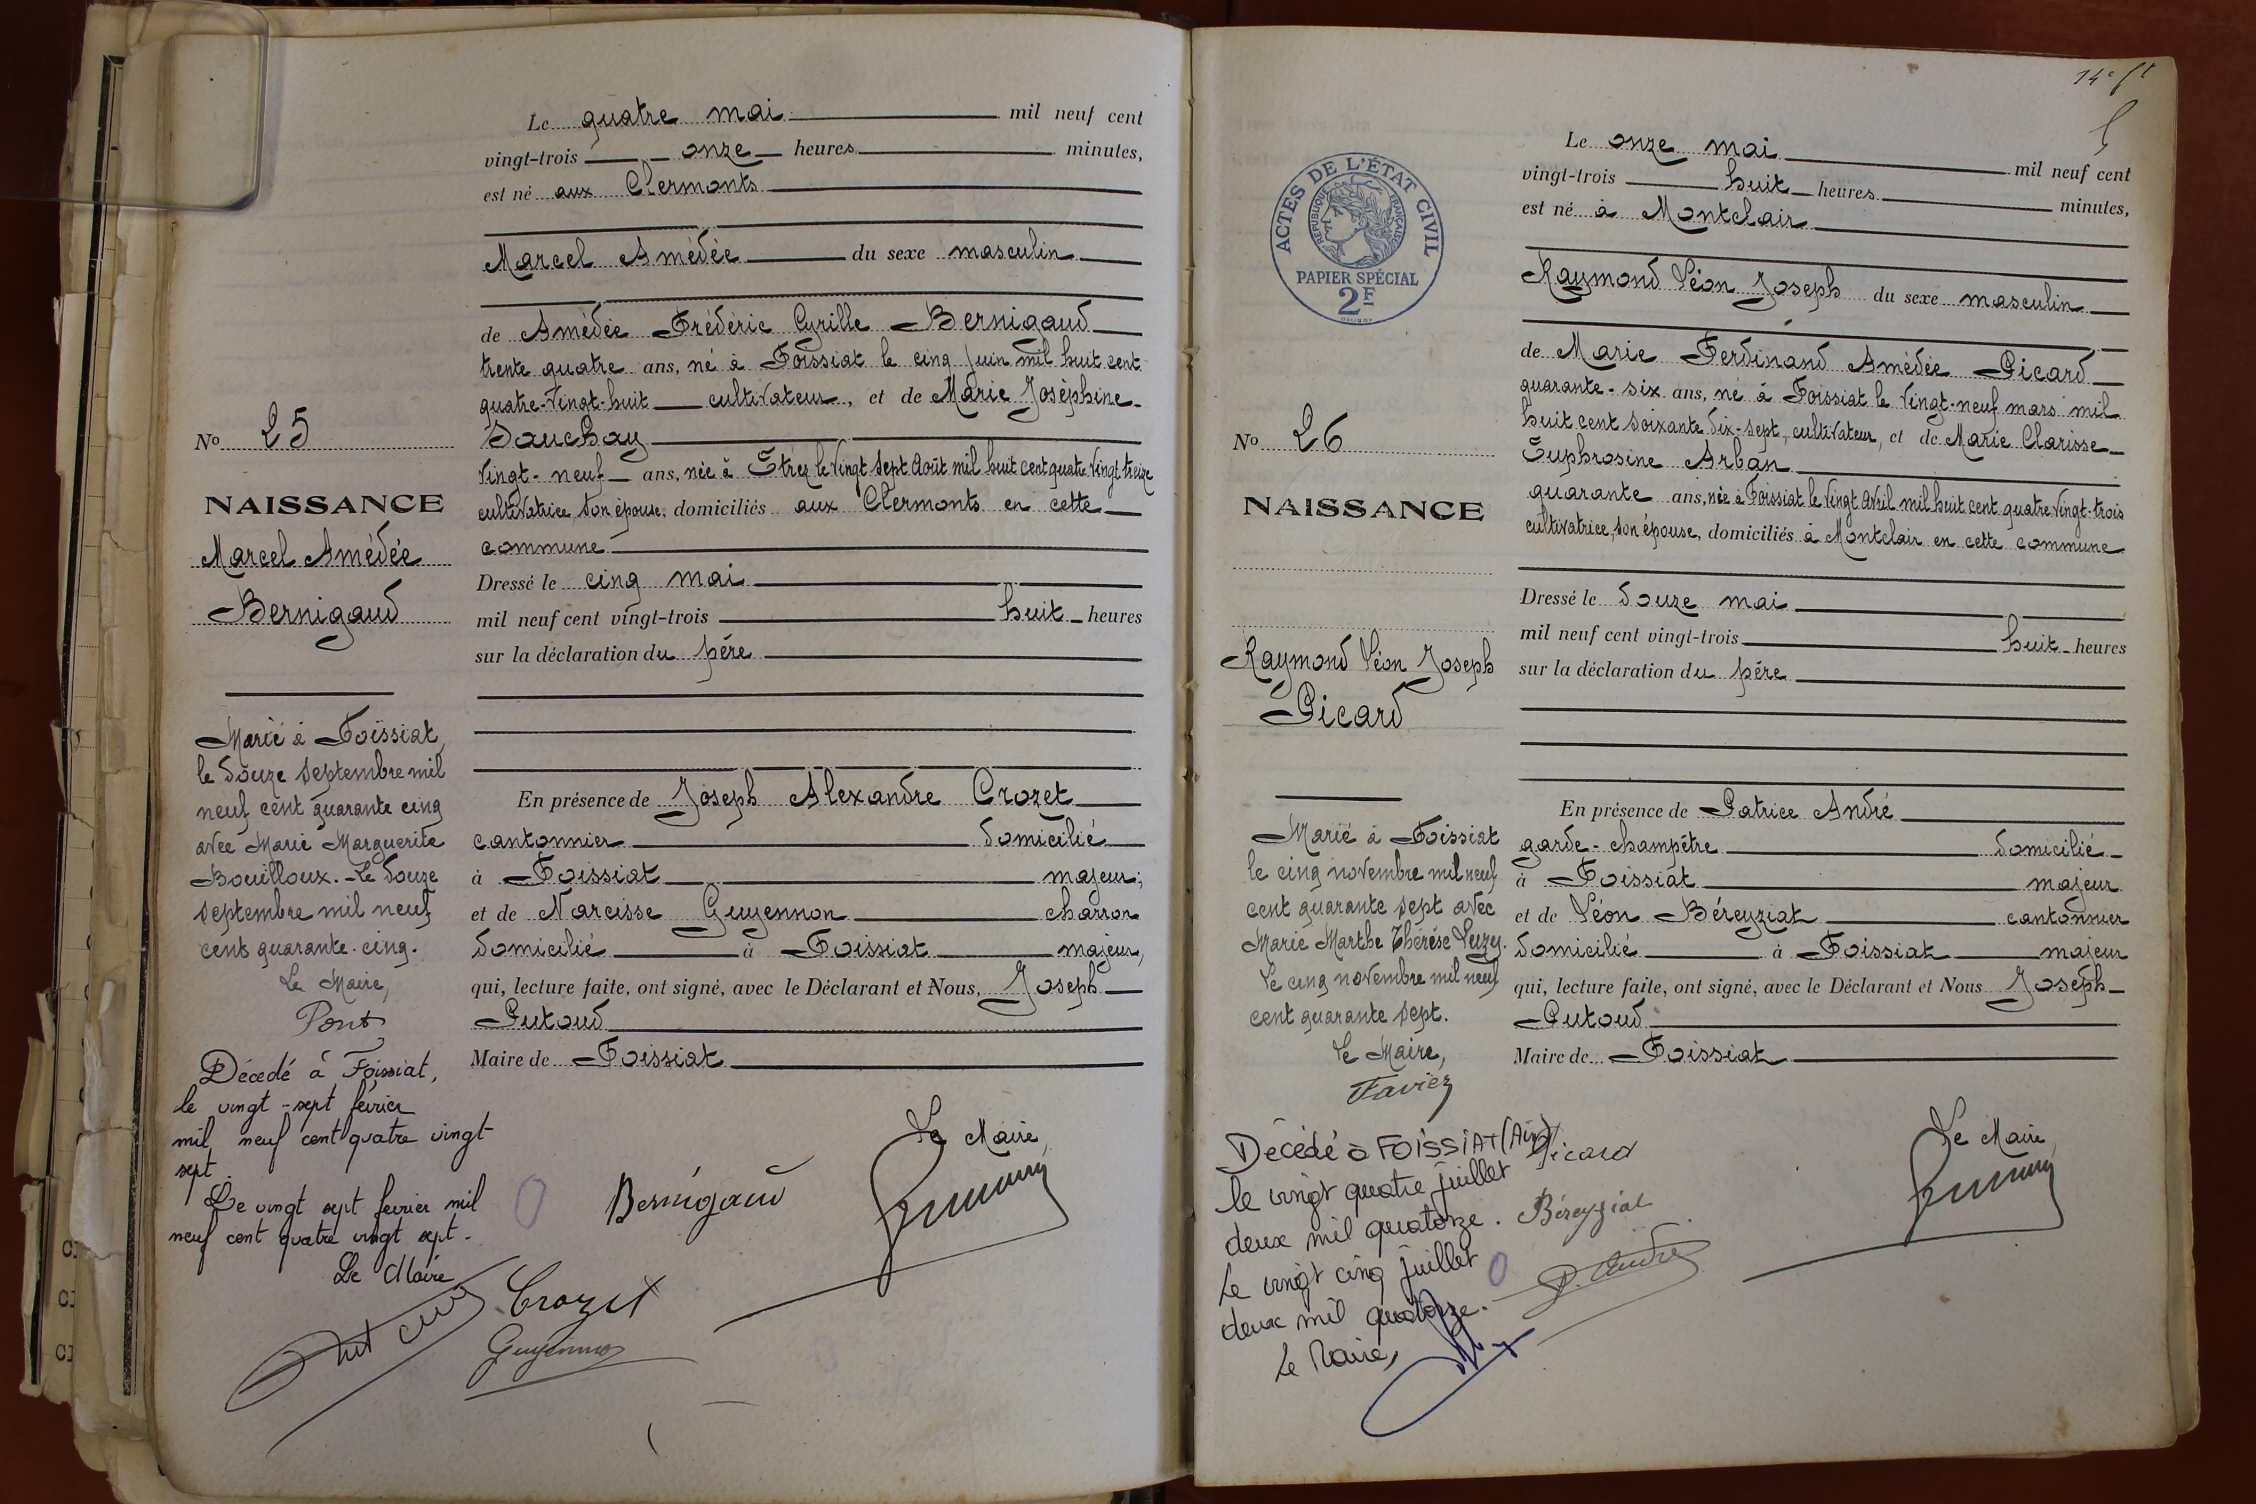 Le quatre mai mil neuf cent
vingt-trois onze heures minutes,
est né aux Clermonts
Marcel Amédée du sexe masculin
de Amédée Frédéric Cyrille Bernigaud
trente quatre ans, né à Foissiat le cinq juin mil huit cent
quatre-vingt-huit cultivateur, et de Marie Joséphine
Dauchay
vingt-neuf ans, née à Étrez le vingt sept août mil huit cent quatre vingt treize
cultivatrice son épouse, domiciliés aux Clermonts en cette
commune
Dressé le cinq mai
mil neuf cent vingt-trois huit heures
sur la déclaration du père
En présence de Joseph Alexandre Crozet
cantonnier domicilié
à Foissiat majeur;
et de Narcisse Guyennon charron
domicilié à Foissiat majeur,
qui, lecture faite, ont signé, avec le Déclarant et Nous, Joseph
Putoud
Maire de Foissiat
Le Maire,
Bernigaud
Crozet
Guyennon
No 25
NAISSANCE
Marcel Amédée
Bernigaud
Marié à Foissiat,
le douze septembre mil
neuf cent quarante cinq
avec Marie Marguerite
Bouilloux. - Le douze
septembre mil neuf
cent quarante-cinq.
Le Maire,
Pont
Décédé à Foissiat,
le vingt-sept février
mil neuf cent quatre vingt
sept.
Le vingt sept fevrier mil
neuf cent quatre vingt sept.
Le Maire
14e ft
Le onze mai mil neuf cent
vingt-trois huit heures minutes,
est né à Montclair
Raymond Léon Joseph du sexe masculin
de Marie Ferdinand Amédée Picard
quarante-six ans, né à Foissiat le vingt-neuf mars mil
huit cent soixante dix-sept, cultivateur, et de Marie Clarisse
Euphrosine Arban
quarante ans, née à Foissiat le vingt avril mil huit cent quatre vingt-trois
cultivatrice, son épouse, domiciliés à Montclair en cette commune
Dressé le douze mai
mil neuf cent vingt-trois huit heures
sur la déclaration du père
En présence de Patrice André
garde-champêtre domicilié
à Foissiat majeur
et de Léon Béreyziat cantonnier
domicilié à Foissiat majeur
qui, lecture faite, ont signé, avec le Déclarant et Nous Joseph
Putoud
Maire de Foissiat
Le Maire,
Picard
Béreyziat
P. André
ACTES DE L'ÉTAT CIVIL
RÉPUBLIQUE FRANÇAISE
PAPIER SPÉCIAL
2F
No 26
NAISSANCE
Raymond Léon Joseph
Picard
Marié à Foissiat
le cinq novembre mil neuf
cent quarante sept avec
Marie Marthe Thérèse Luzy.
Le cinq novembre mil neuf
cent quarante sept.
Le Maire,
Favier
Décédé à FOISSIAT (Ain)
le vingt quatre juillet
deux mil quatorze.
Le vingt cinq juillet
deux mil quatorze.
Le Maire,